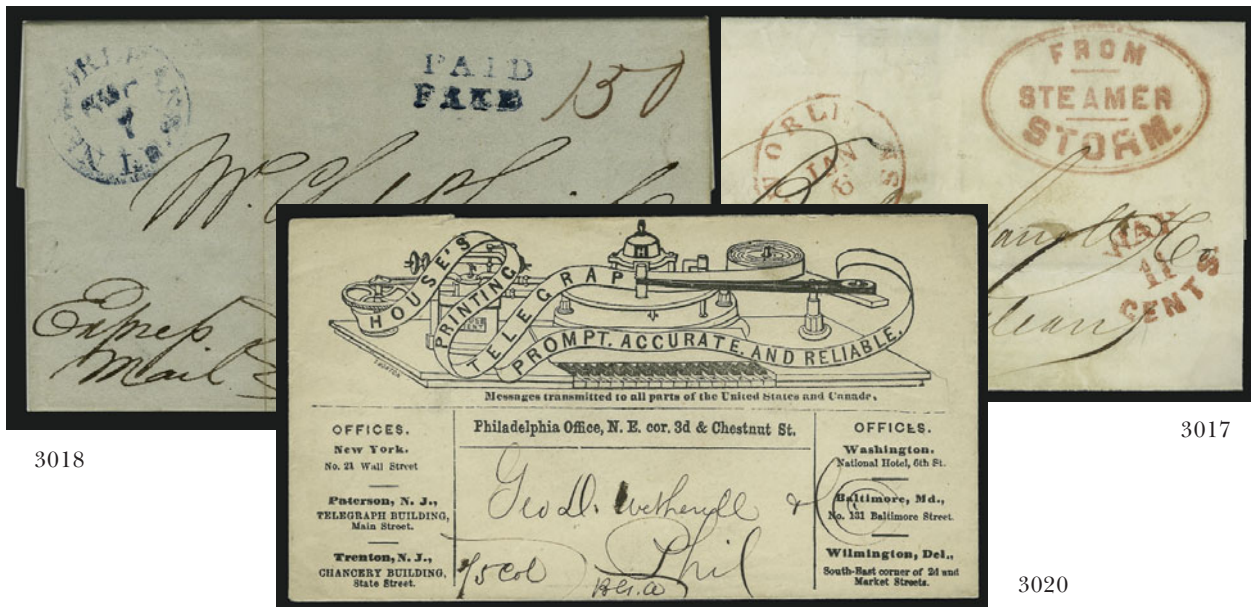 PAID
FAKE
150
Mr.
Express
Mail
3018
FROM
STEAMER
STORM.
JAN
6
WAY
11
CENTS
3017
HOUSE'S
PRINTING
TELEGRAP
H
PROMPT. ACCURATE. AND RELIABLE.
Messages transmitted to all parts of the United States and Canada.
OFFICES.
New York.
No. 21 Wall Street
Paterson, N. J.,
TELEGRAPH BUILDING,
Main Street.
Trenton, N. J.,
CHANCERY BUILDING,
State Street.
Philadelphia Office, N. E. cor. 3d & Chestnut St.
Geo D. Wetherill & Co
Phil
OFFICES.
Washington.
National Hotel, 6th St.
Baltimore, Md.,
No. 131 Baltimore Street.
Wilmington, Del.,
South-East corner of 2d and
Market Streets.
3020